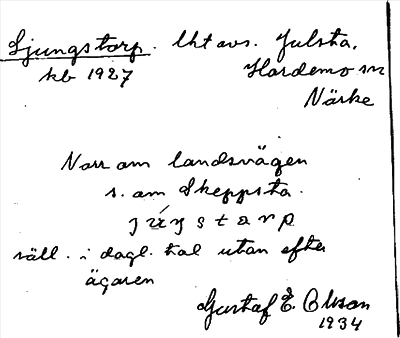 Ljungstorp. lht avs. Julsta,
kb 1927 Hardemo sn
Närke
Norr om landsvägen
s. om Skeppsta.
säll. i dagl. tal utan efter
ägaren
Gustaf E. Olsson
1934